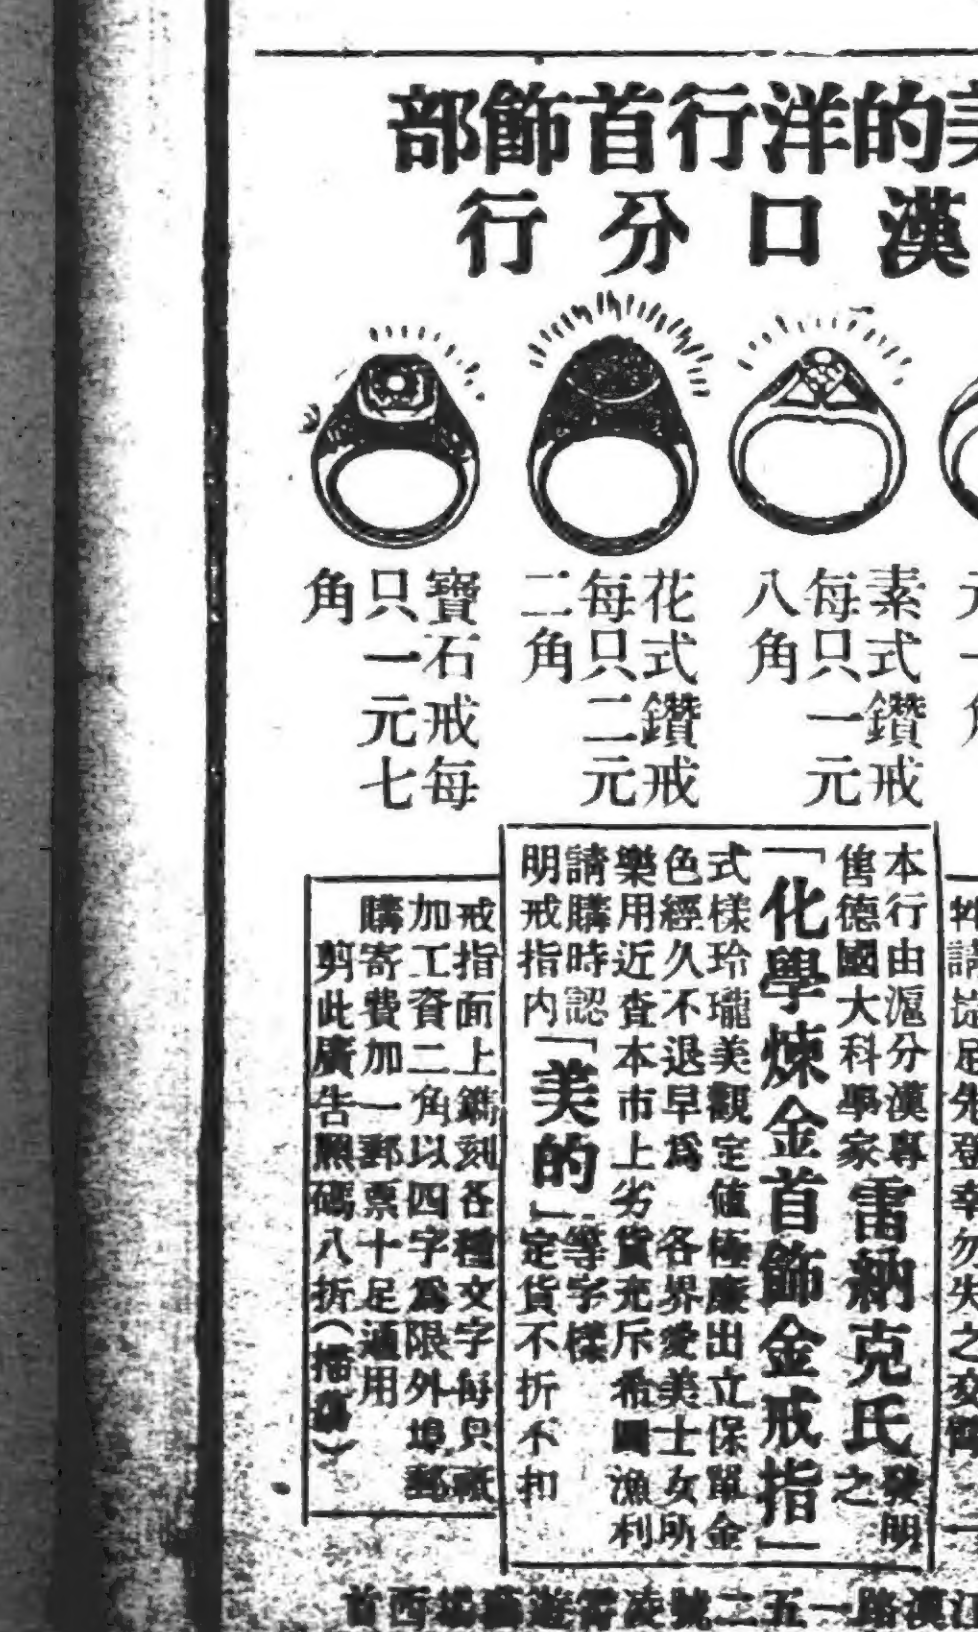 美的洋行首飾部
漢口分行
素式鑽戒
每只一元
八角
花式鑽戒
每只二元
二角
寶石戒每
只一元七
角
本行由滬分漢專
售德國大科學家雷納克氏發明之
「化學煉金首飾金戒指」
式樣玲瓏美觀定値極廉出立保單金
色經久不退早爲各界愛美士女所
樂用近查本市上劣貨充斥希圖漁利
請購時認
明戒指內「美的」等字樣
定貨不折不扣
戒指面上鐫刻各種文字每只祇
加工資二角以四字爲限外埠郵
購寄費加一郵票十足通用
剪此廣告照碼八折
江漢路一五二號凌霄遊藝場西首